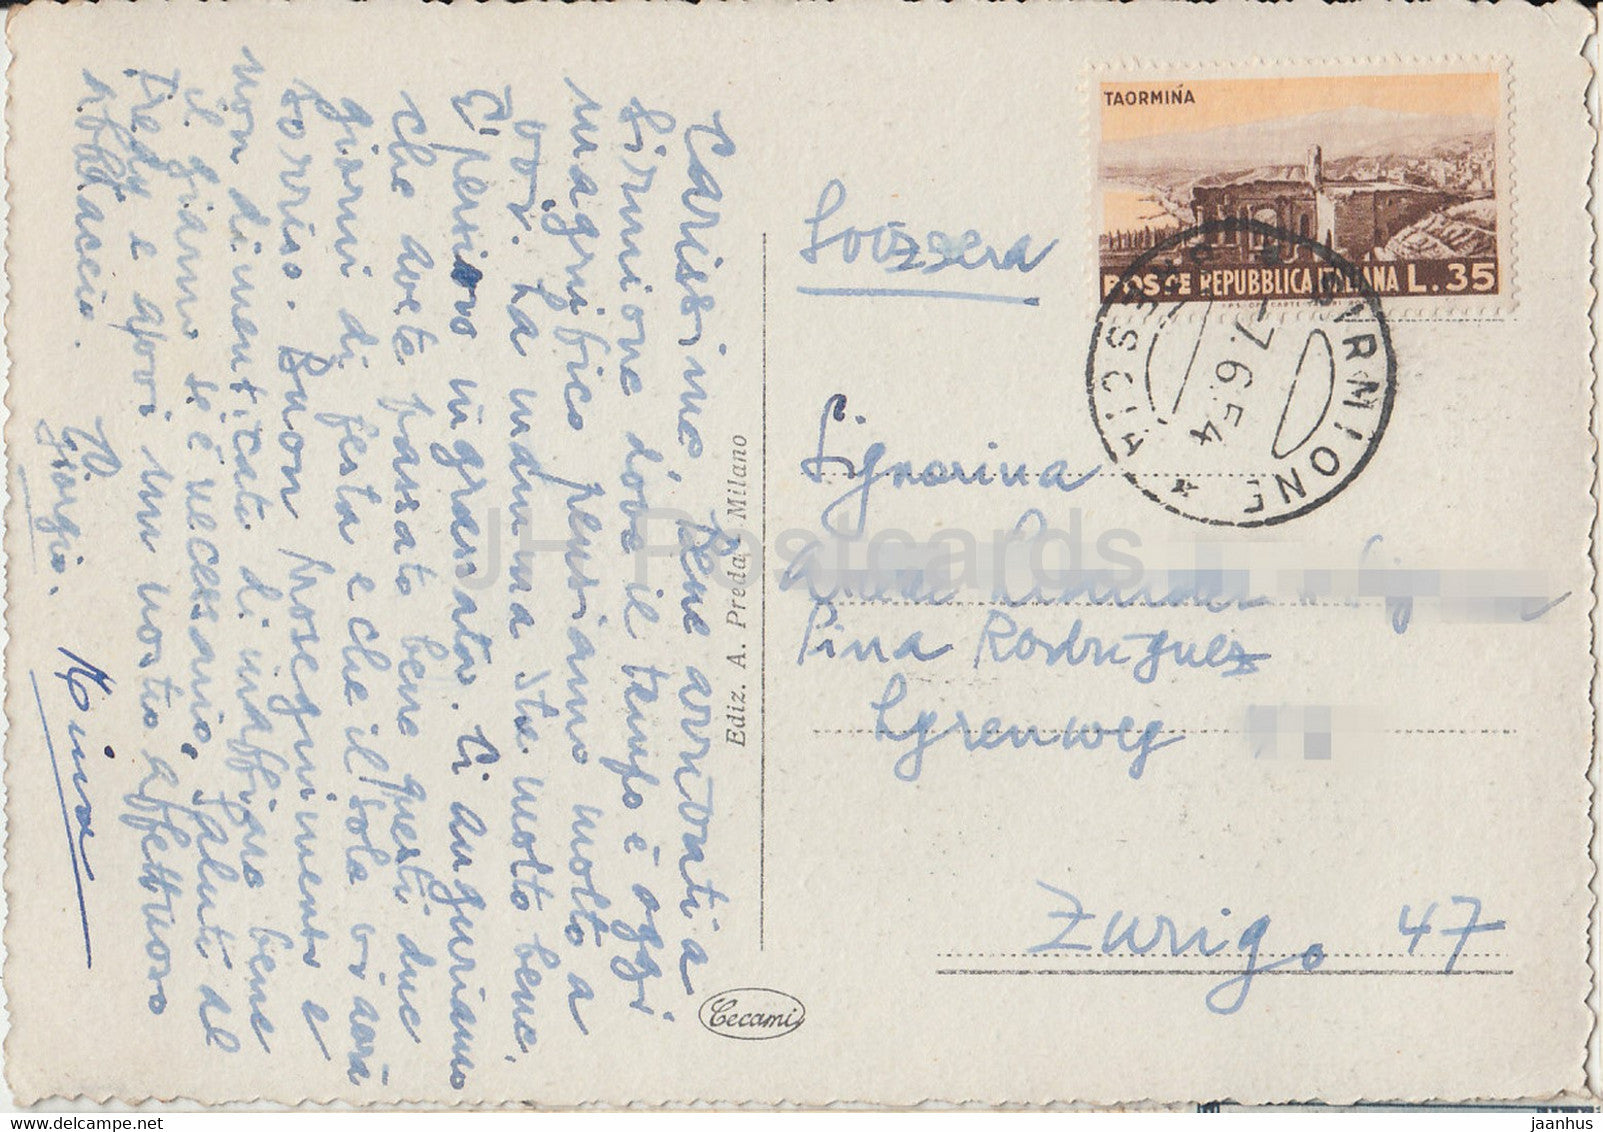 Carissime, bene arrivati a
Sirmione dove il tempo è oggi
magnifico pensiamo molto a
voi. La mamma sta molto bene.
È persino ingrassata. Vi auguriamo
che avete passato bene questi due
giorni di festa e che il sole vi avrà
sorriso. Buon proseguimento e
non dimenticate di innaffiare bene
il giardino se è necessario. Saluti al
Fredy e a voi un nostro affettuoso
abbraccio.
Giorgio.
Nina
Ediz. A. Preda - Milano
Cecami
TAORMINA
POSTE REPUBBLICA ITALIANA L. 35
SIRMIONE
BRESCIA
-7.6.54
Svizzera
Signorina
Pina Rodriguez
Lyrenweg
Zurigo 47
JH Postcards
delcampe.net
jaanhus